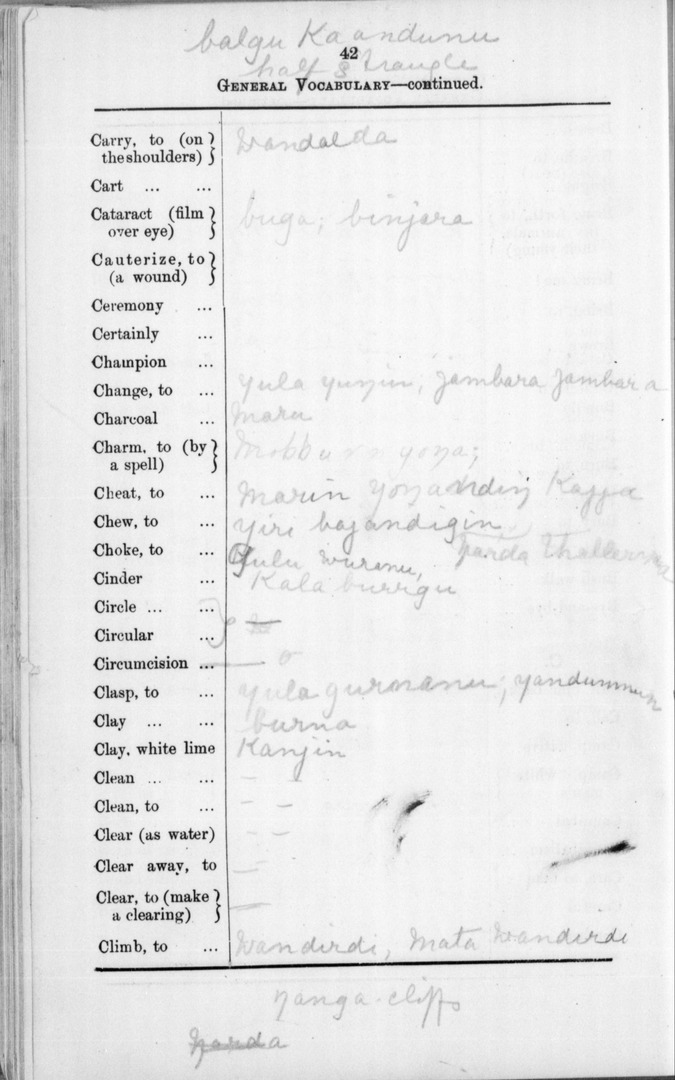 balgu Kaandunu
42
half strangle
GENERAL VOCABULARY—continued.
Carry, to (on the shoulders) Wandalda
Cart ... ...
Cataract (film over eye) buga; binjara
Cauterize, to (a wound)
Ceremony ...
Certainly ...
Champion ...
Change, to ... jambara jambara
Charcoal ... maru
Charm, to (by a spell)
Cheat, to ... marin
Chew, to ... yiri bajandigin
Choke, to ...
Cinder ... Kala burrgu
Circle ... ...
Circular ...
Circumcision ... — o
Clasp, to ... yula
Clay ... ... burna
Clay, white lime Kanjin
Clean ... ... – –
Clean, to ... – –
Clear (as water) – –
Clear away, to —
Clear, to (make a clearing) —
Climb, to ... Wandirdi, mata wandirdi
nanga - cliffs